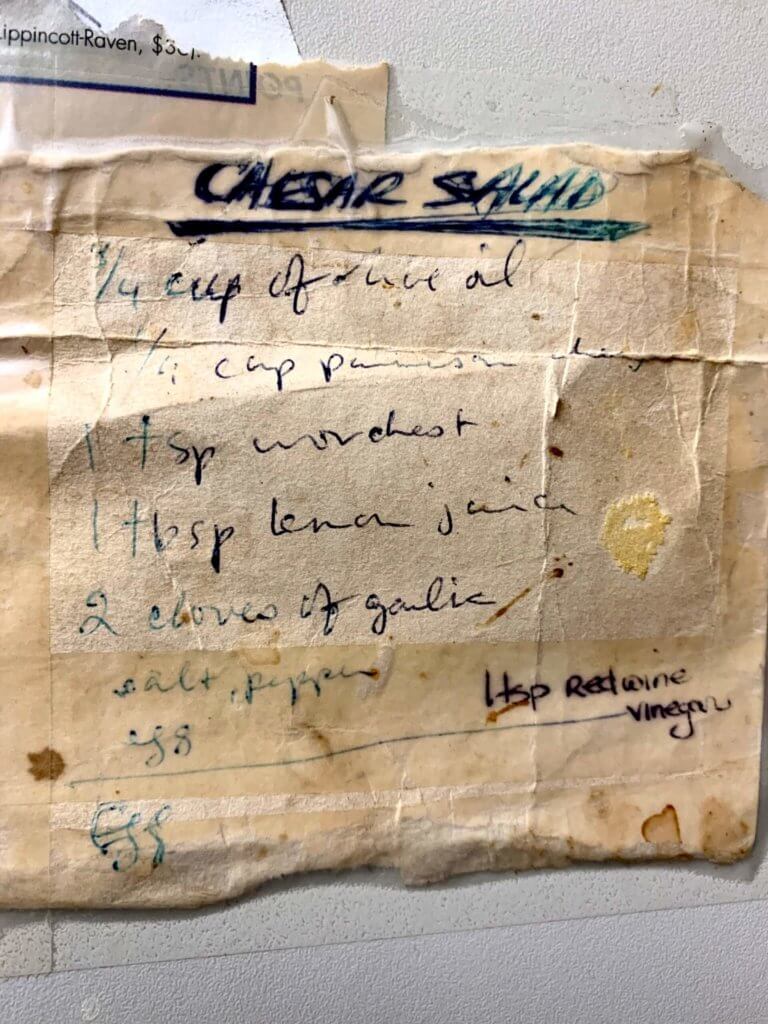 Lippincott-Raven,
POINTS
CAESAR SALAD
3/4 cup of olive oil
1/4 cup parmesan
1 tsp worchest
1 tbsp lemon juice
2 cloves of garlic
salt, pepper
1 tsp Red wine
vinegar
egg
Egg